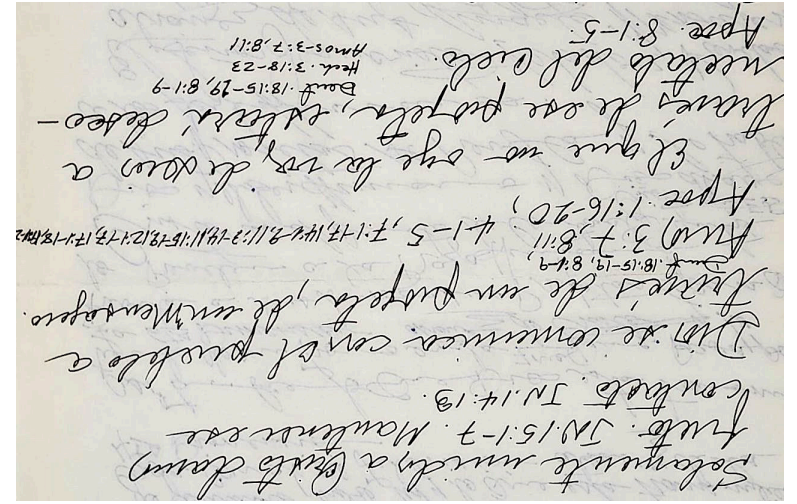 Solamente unidos a Cristo damos
fruto. JN.15:1-7. Mantener ese
contacto. JN.14:13.
Dios se comunica con el pueblo a
través de un profeta, de un mensajero.
Deut. 18:15-19, 8:1-9,
Amos 3:7, 8:11
Apoc. 1:16-20, 4:1-5, 7:1-17, 11:3-14, 11:15-19, 12:1-17, 17:1-18,
El que no oye la voz de Dios a
través de ese profeta, estará desco-
nectado del cielo.
Deut. 18:15-19, 8:1-9
Hech. 3:18-23
Amos-3:7, 8:11
Apoc. 8:1-5.